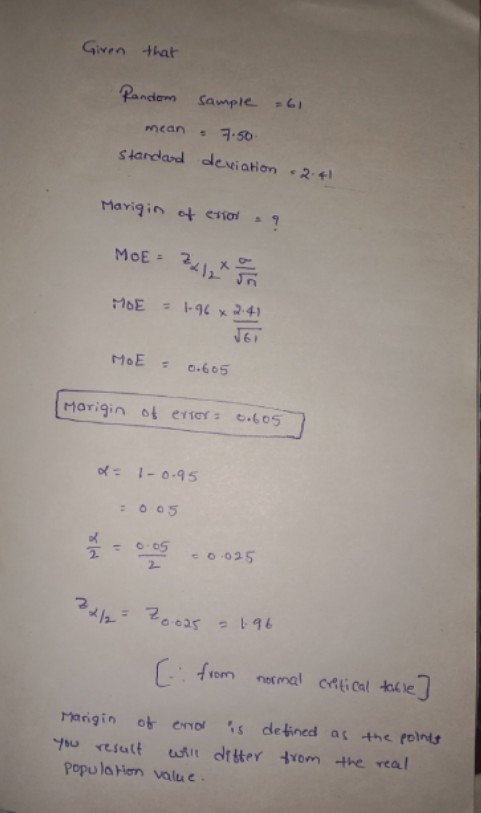 Given that
Random sample = 61
mean = 7.50.
standard deviation = 2.41
Marigin of error = ?
MOE = Zα/2 × σ/√n
MOE = 1.96 × 2.41/√61
MOE = 0.605
Marigin of error = 0.605
α = 1 - 0.95
= 0.05
α/2 = 0.05/2 = 0.025
Zα/2 = Z0.025 = 1.96
[∵ from normal critical table]
Marigin of error is defined as the points
you result will differ from the real
population value.